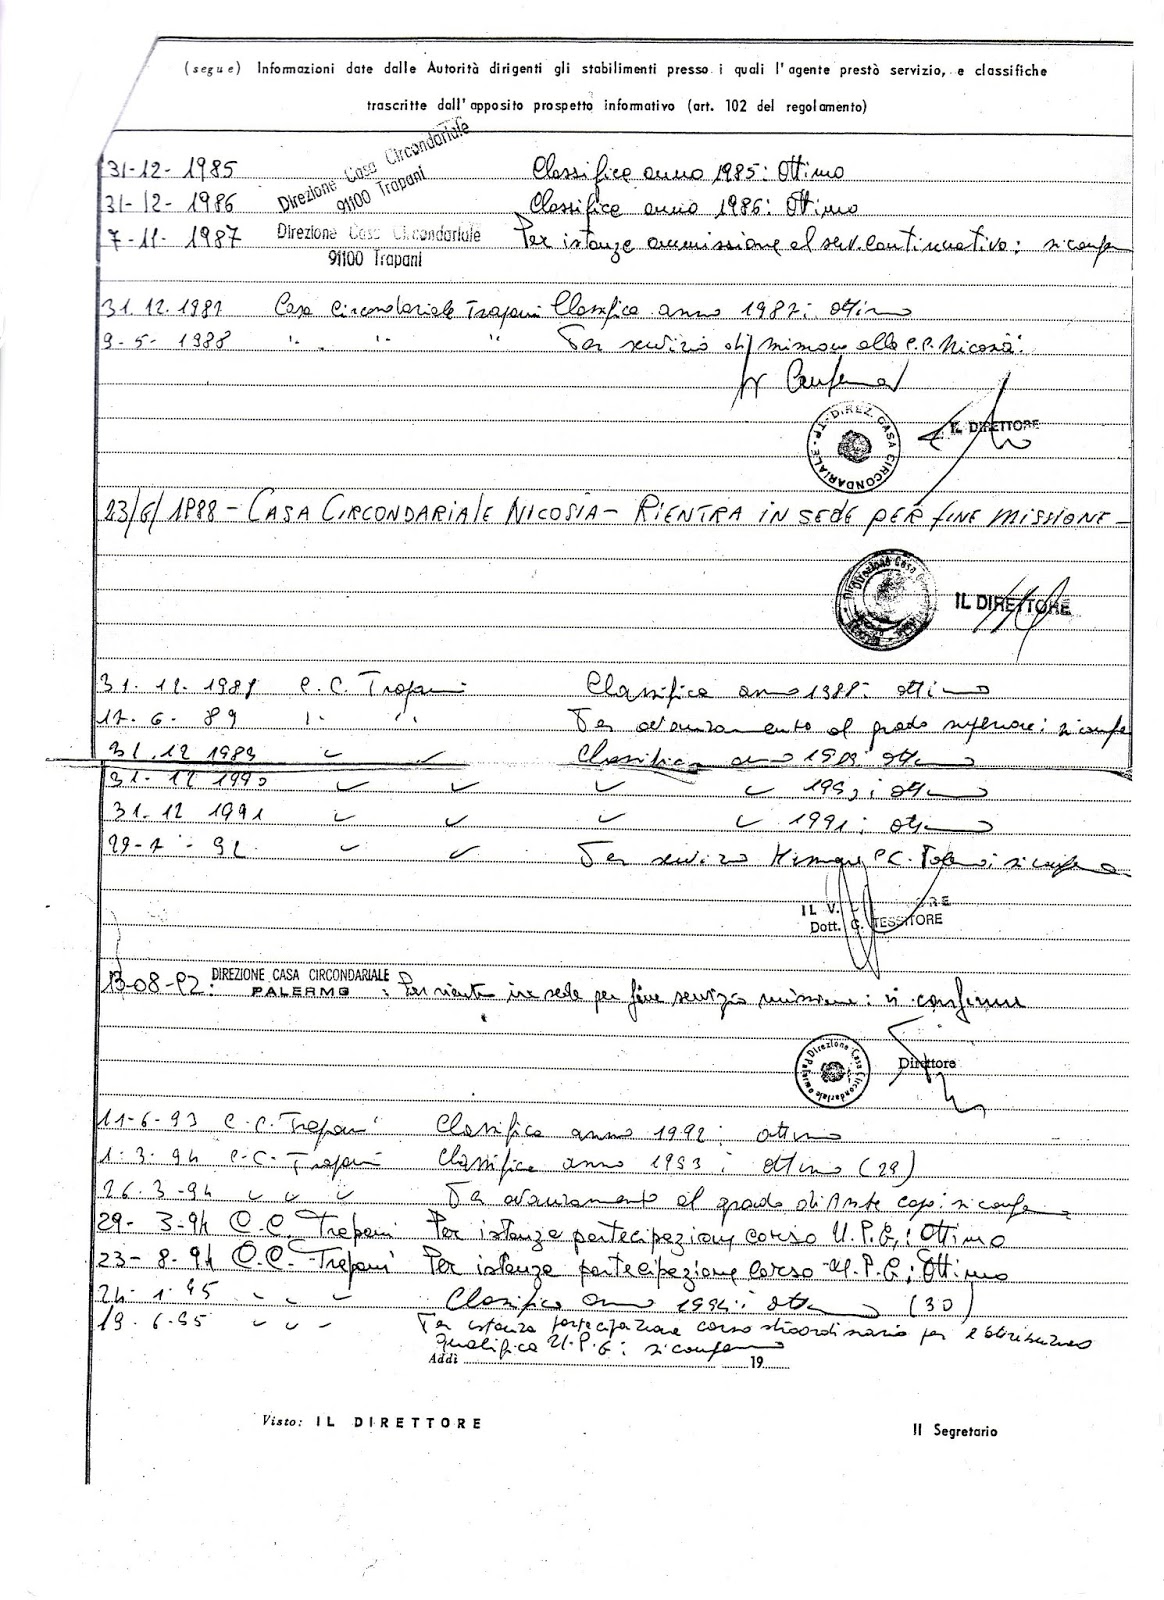 (segue) Informazioni date dalle Autorità dirigenti gli stabilimenti presso i quali l'agente prestò servizio, e classifiche
trascritte dall'apposito prospetto informativo (art. 102 del regolamento)
31-12-1985 Direzione Casa Circondariale 91100 Trapani Classifica anno 1985: Ottimo
31-12-1986 Classifica anno 1986: Ottimo
7-11-1987 Direzione Casa Circondariale Per istanza ammissione al serv. continuativo: si conferma
91100 Trapani
31.12.1987 Casa Circondariale Trapani Classifica anno 1987: ottimo
9-5-1988 " " " Per servizio di missione alla C.C. Nicosia:
si conferma
TP-DIREZ. CASA CIRCONDARIALE
IL DIRETTORE
23/6/1988 - CASA CIRCONDARIALE NICOSIA - RIENTRA IN SEDE PER FINE MISSIONE -
IL DIRETTORE
31.12.1988 C.C. Trapani Classifica anno 1988: ottimo
17.6.89 " " Per avanzamento al grado superiore: si conferma
31.12.1989 Classifica anno 1989: ottimo
31-12 1990 1990: ottimo
31.12 1991 1991: ottimo
29-7-92 Per servizio Missione C.C. si conferma
IL V.
Dott. G. TESSITORE
13-08-92: DIREZIONE CASA CIRCONDARIALE
PALERMO : Per rientro in sede per fine servizio missione: si conferma
Direttore
11-6-93 C.C. Trapani Classifica anno 1992: ottimo
1.3.94 C.C. Trapani Classifica anno 1993: ottimo (29)
26.3-94 Per avanzamento al grado di Ass.te capo: si conferma
29-3-94 C.C. Trapani Per istanza partecipazione corso U.P.G.: Ottimo
23-8-94 C.C. Trapani Per istanza partecipazione corso U.P.G.: Ottimo
24.1.95 Classifica anno 1994: ottimo (30)
19.6.95 Per istanza partecipazione corso straordinario per l'attribuzione
qualifica U.P.G: si conferma
Addì 19
Visto: IL DIRETTORE
Il Segretario